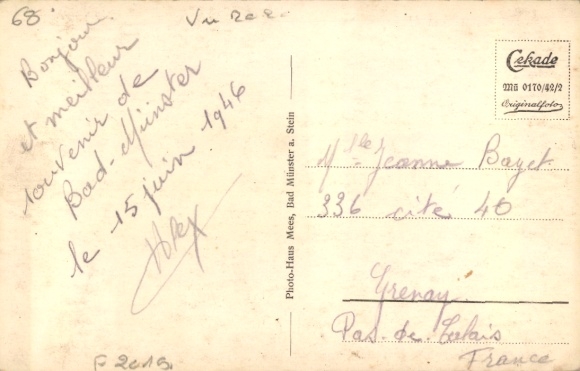 68.
Bonjour
et meilleur
souvenir de
Bad-Münster
le 15 juin 1946
Photo-Haus Mees, Bad Münster a. Stein
Cekade
Mü 0170/42/2
Originalfoto
Mlle Jeanne Bazet
336 cité 40
Grenay
Pas-de-Calais
France